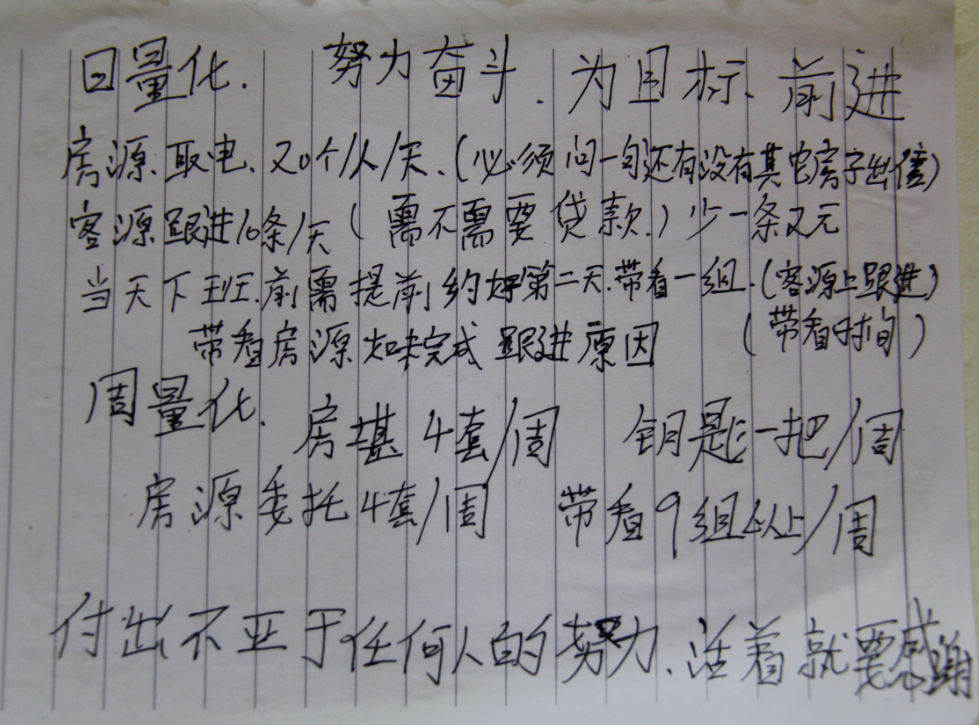 日量化. 努力奋斗. 为目标、前进
房源.取电.20个/人/天.(必须问一句还有没有其它房子出售)
客源跟进10条/天(需不需要贷款.)少一条2元
当天下班.前需提前约好第二天.带看一组.(客源上跟进)
带看房源如未完成跟进原因 (带看时间)
周量化. 房堪4套/周 钥匙一把/周
房源委托4套/周 带看9组以上/周
付出不亚于任何人的努力.活着就要感谢